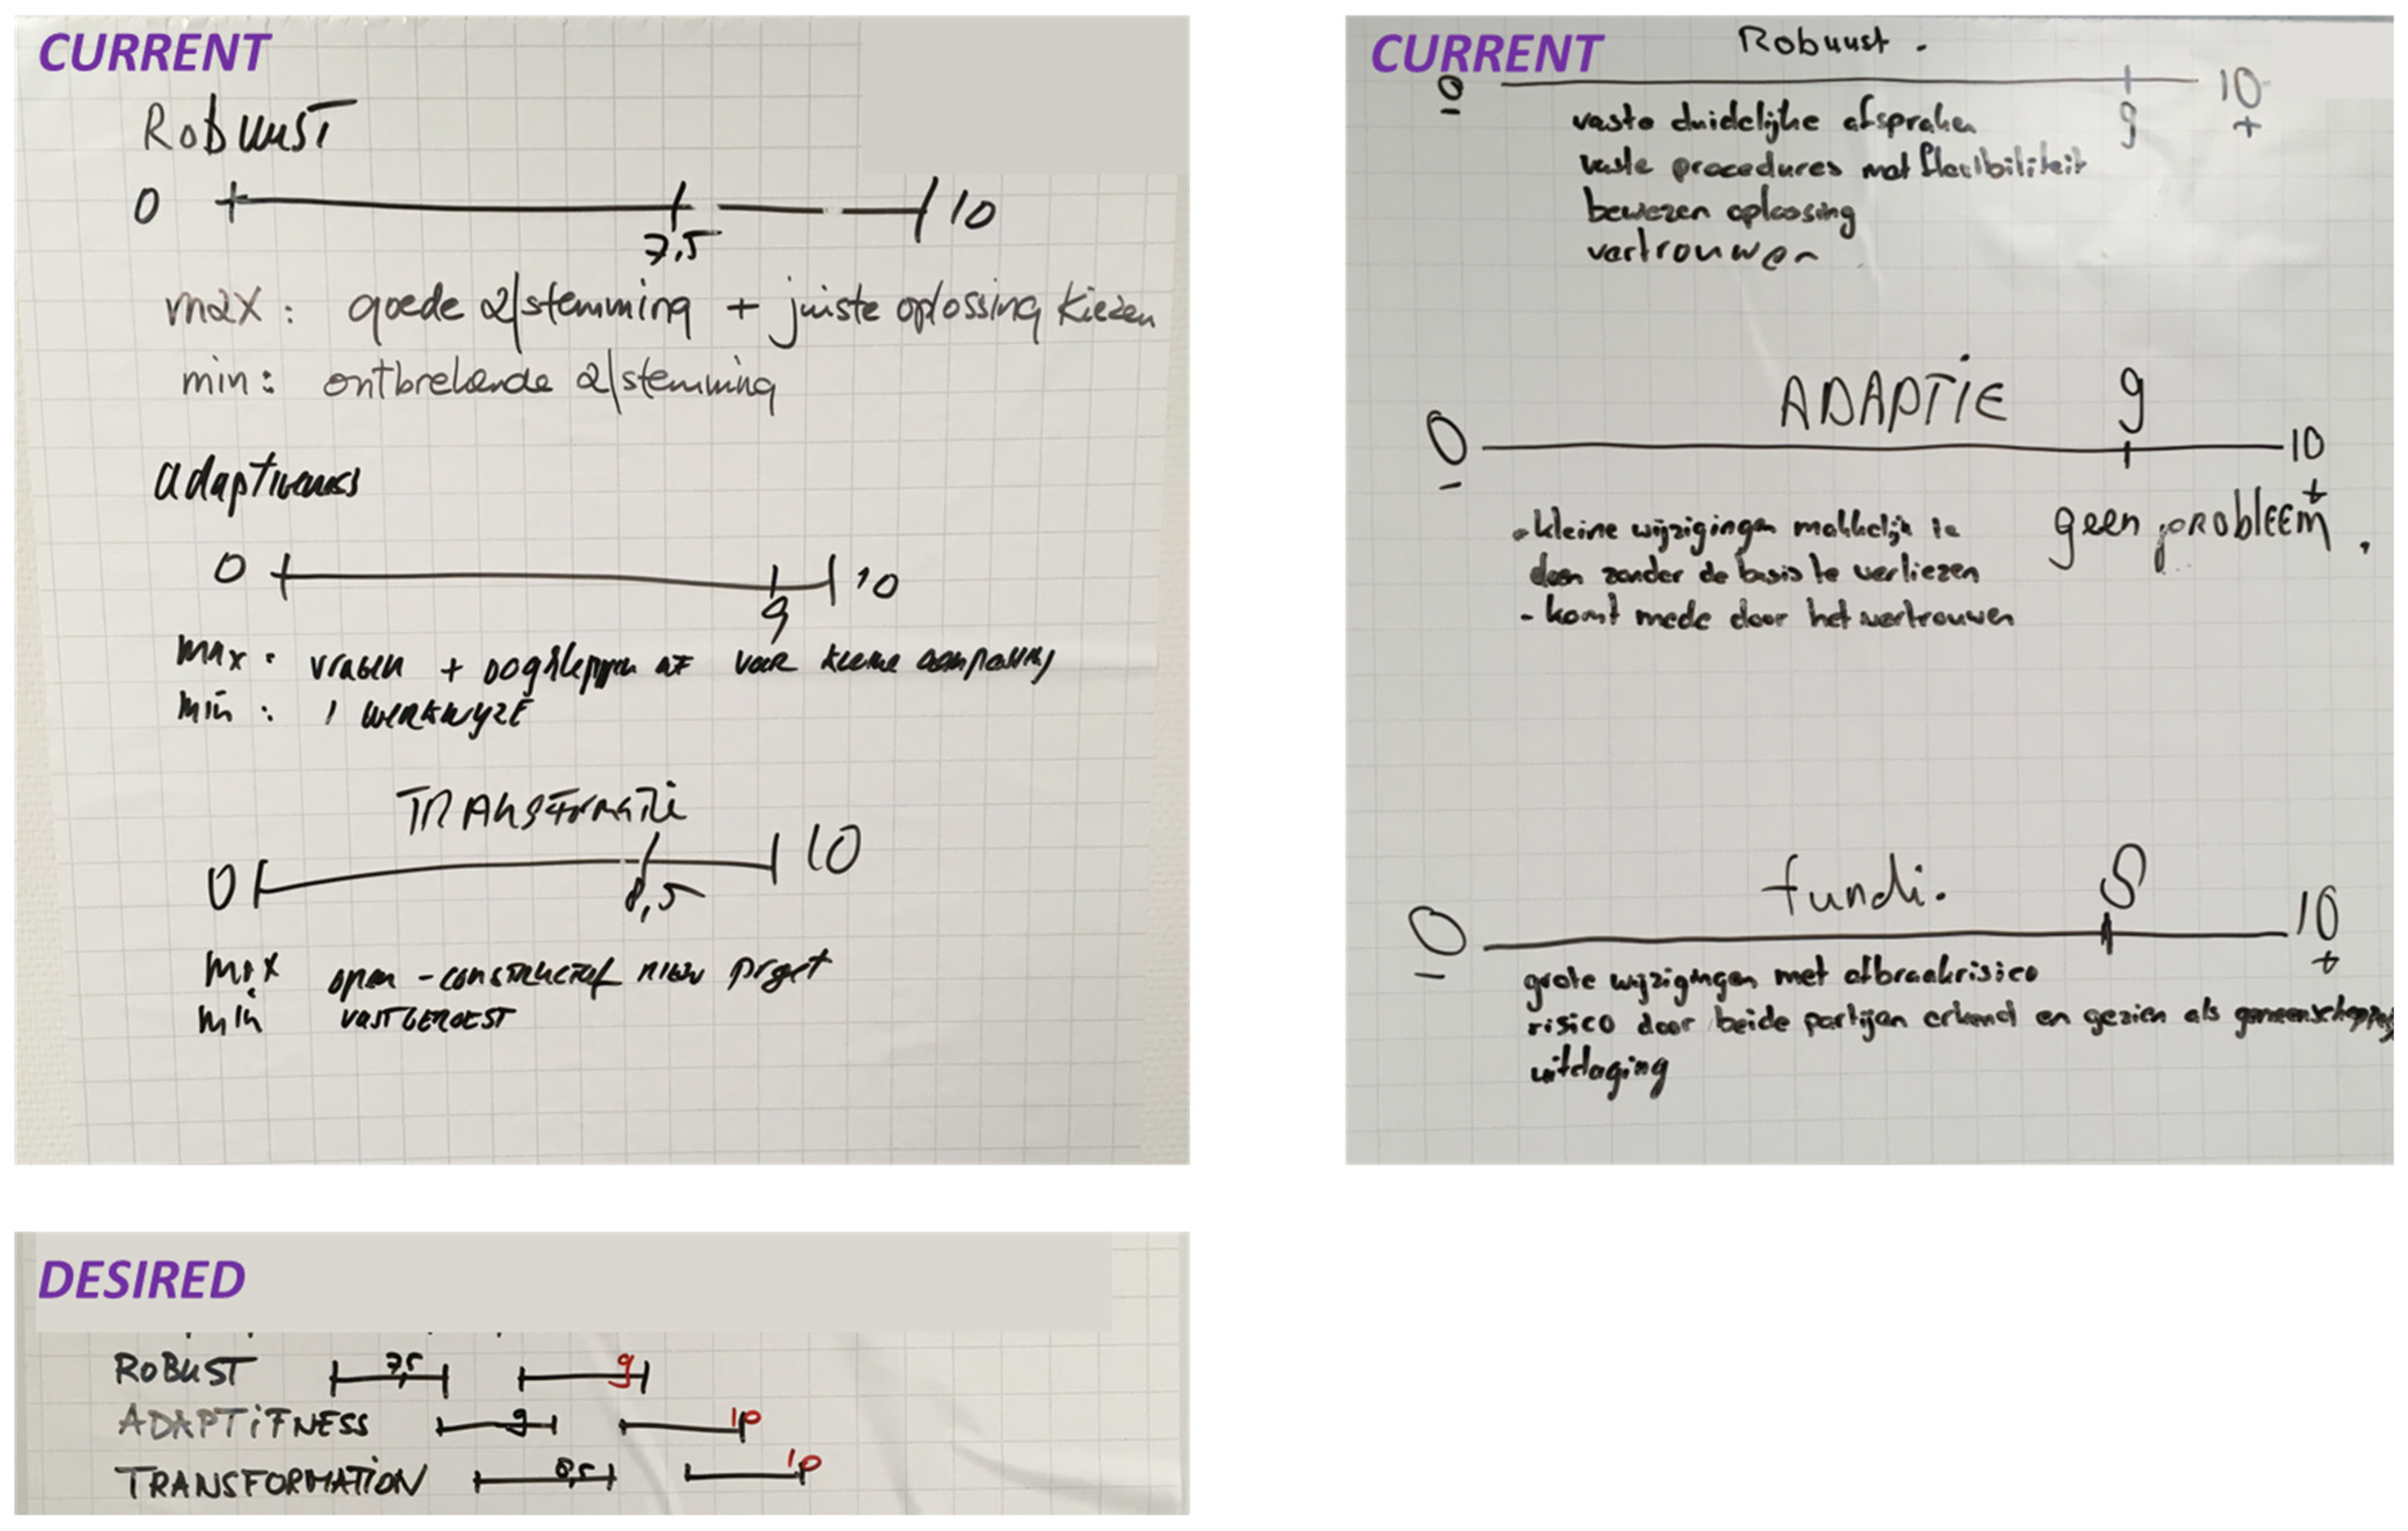 CURRENT
Robuust
0 10
7,5
max : goede afstemming + juiste oplossing kiezen
min : ontbrekende afstemming
adaptiveness
0 10
9
max : vragen + oogkleppen af voor kleine aanpassing
min : 1 werkwyze
TRANSformatie
0 10
8,5
max open - constructief nieuw projet
min VASTGEROEST
CURRENT
Robuust .
0 10
- 9 +
vaste duidelijke afspraken
vaste procedures met flexibiliteit
bewezen oplossing
vertrouwen
ADAPTIE 9
0 10
- +
- kleine wijzigingen makkelijk te
doen zonder de basis te verliezen
- komt mede door het vertrouwen
geen probleem .
fundi. 8
0 10
- +
grote wijzigingen met afbraakrisico
risico door beide partijen erkend en gezien als
uitdaging
DESIRED
ROBUST 7,5 9
ADAPTiFNESS 9 10
TRANSFORMATiON 8,5 10